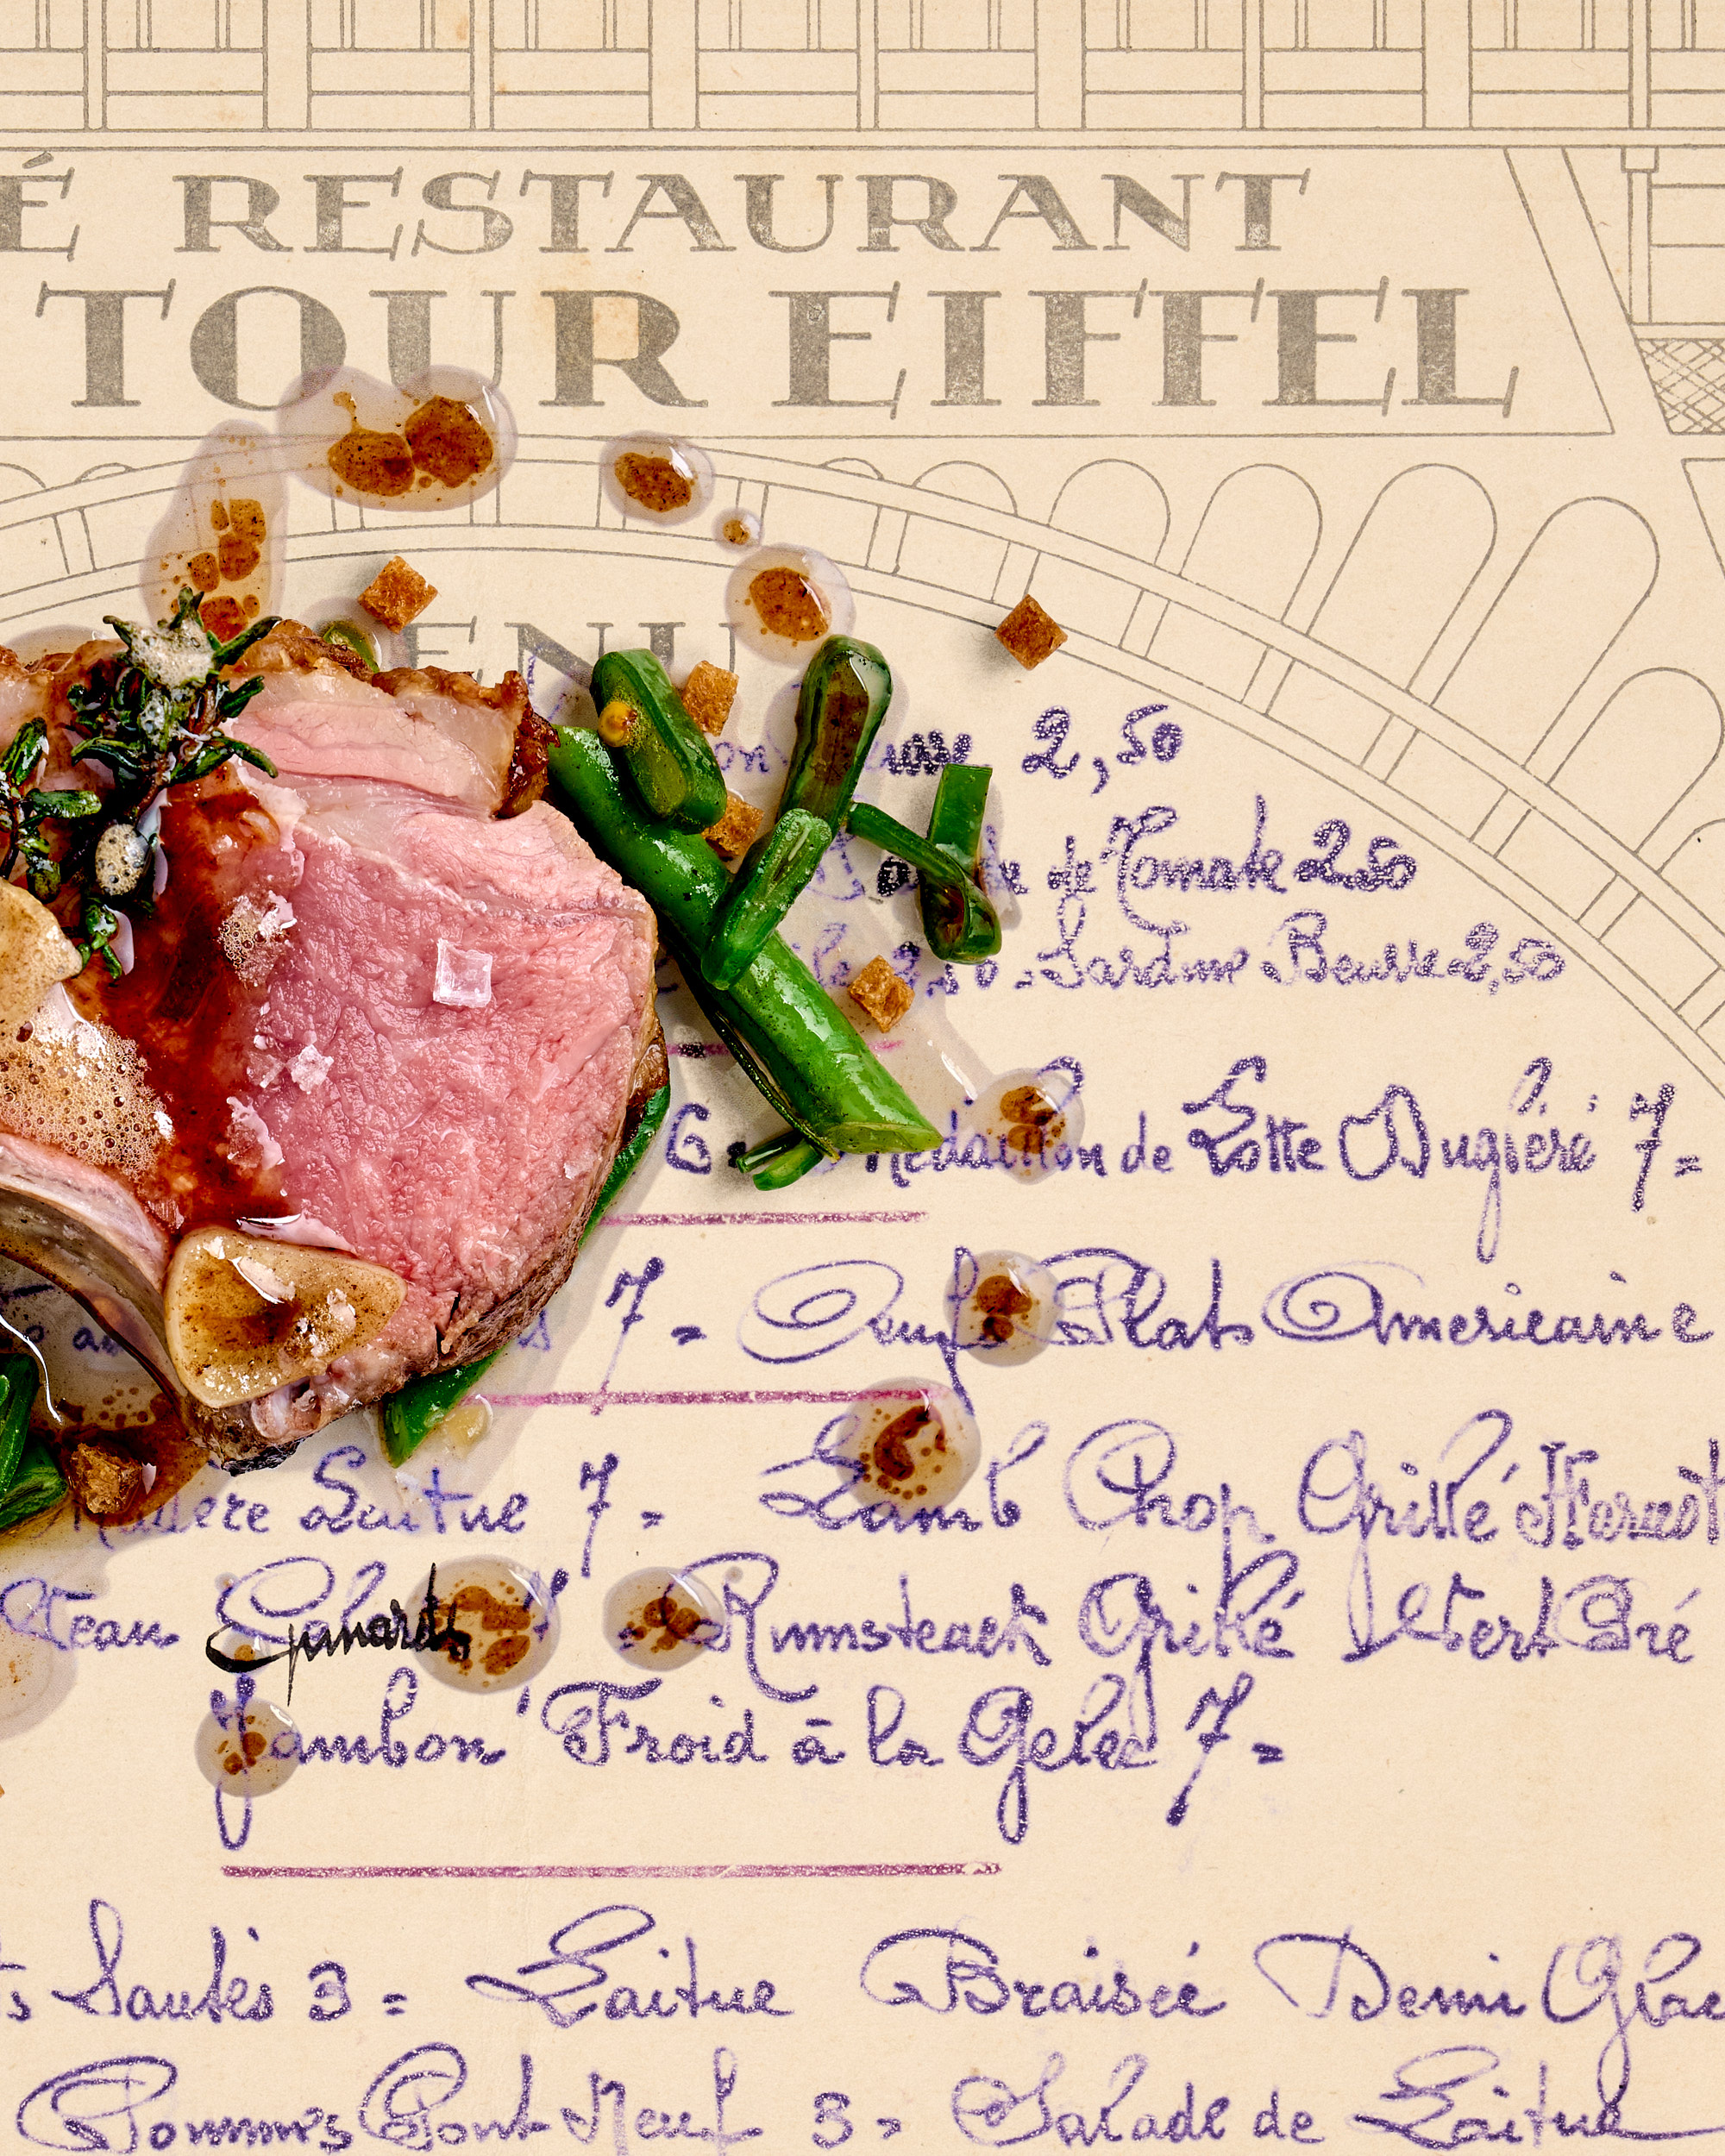 É RESTAURANT
TOUR EIFFEL
ENU
2,50
de Tomate 2.50
2.50 = Sardine Beurre 2,50
6. Médaillon de Lotte Dugléré 7 =
7 = Oeufs Plats Americaine
Madère Laitue 7 = Lamb Chop Grillé
Rumsteack Grillé Vert Pré
Jambon Froid à la Gelée 7 =
Sautés 3 = Laitue Braisée Demi Glac
Pommes Pont Neuf 3 = Salade de Laitue